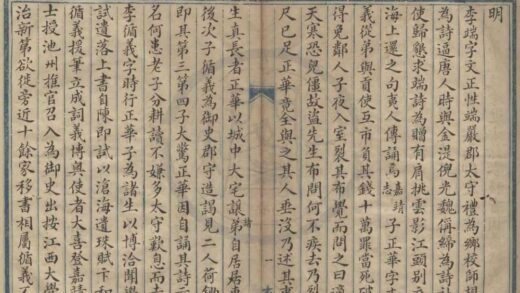 明
李端字文正性端嚴郡太守禮為鄉校師相
為詩逼唐人時與金湜倪光魏偁締為詩
使歸懇求端詩為贈有肩挑雲影江頭別
海上還之句夷人傳誦焉嘉靖志子正華字
義從弟與貢使互市負其錢十萬罪當死
得免鄰人子夜入室裂其布覺而問之曰適
天寒恐兒僵故盜先生布問何不疾去乃
尺已足正華竟全與之其人垂沒乃述其
生真長者正華以城中大宅讓諸弟自居東
一
後次子循義為御史郡守造謁見二人荷鋤
即其第三第四子大驚正華因自誦其詩
名何患老子分耕讀不嫌多太守歎息而去
李循義字時行正華子為諸生以博洽聞
試遺落上書自陳即試以滄海遺珠賦卞和
循義援筆立成詞義博奧使者大喜登嘉靖
士授池州推官召入為御史出按江西大學
治新第欲徙旁近十餘家移書相屬循義不